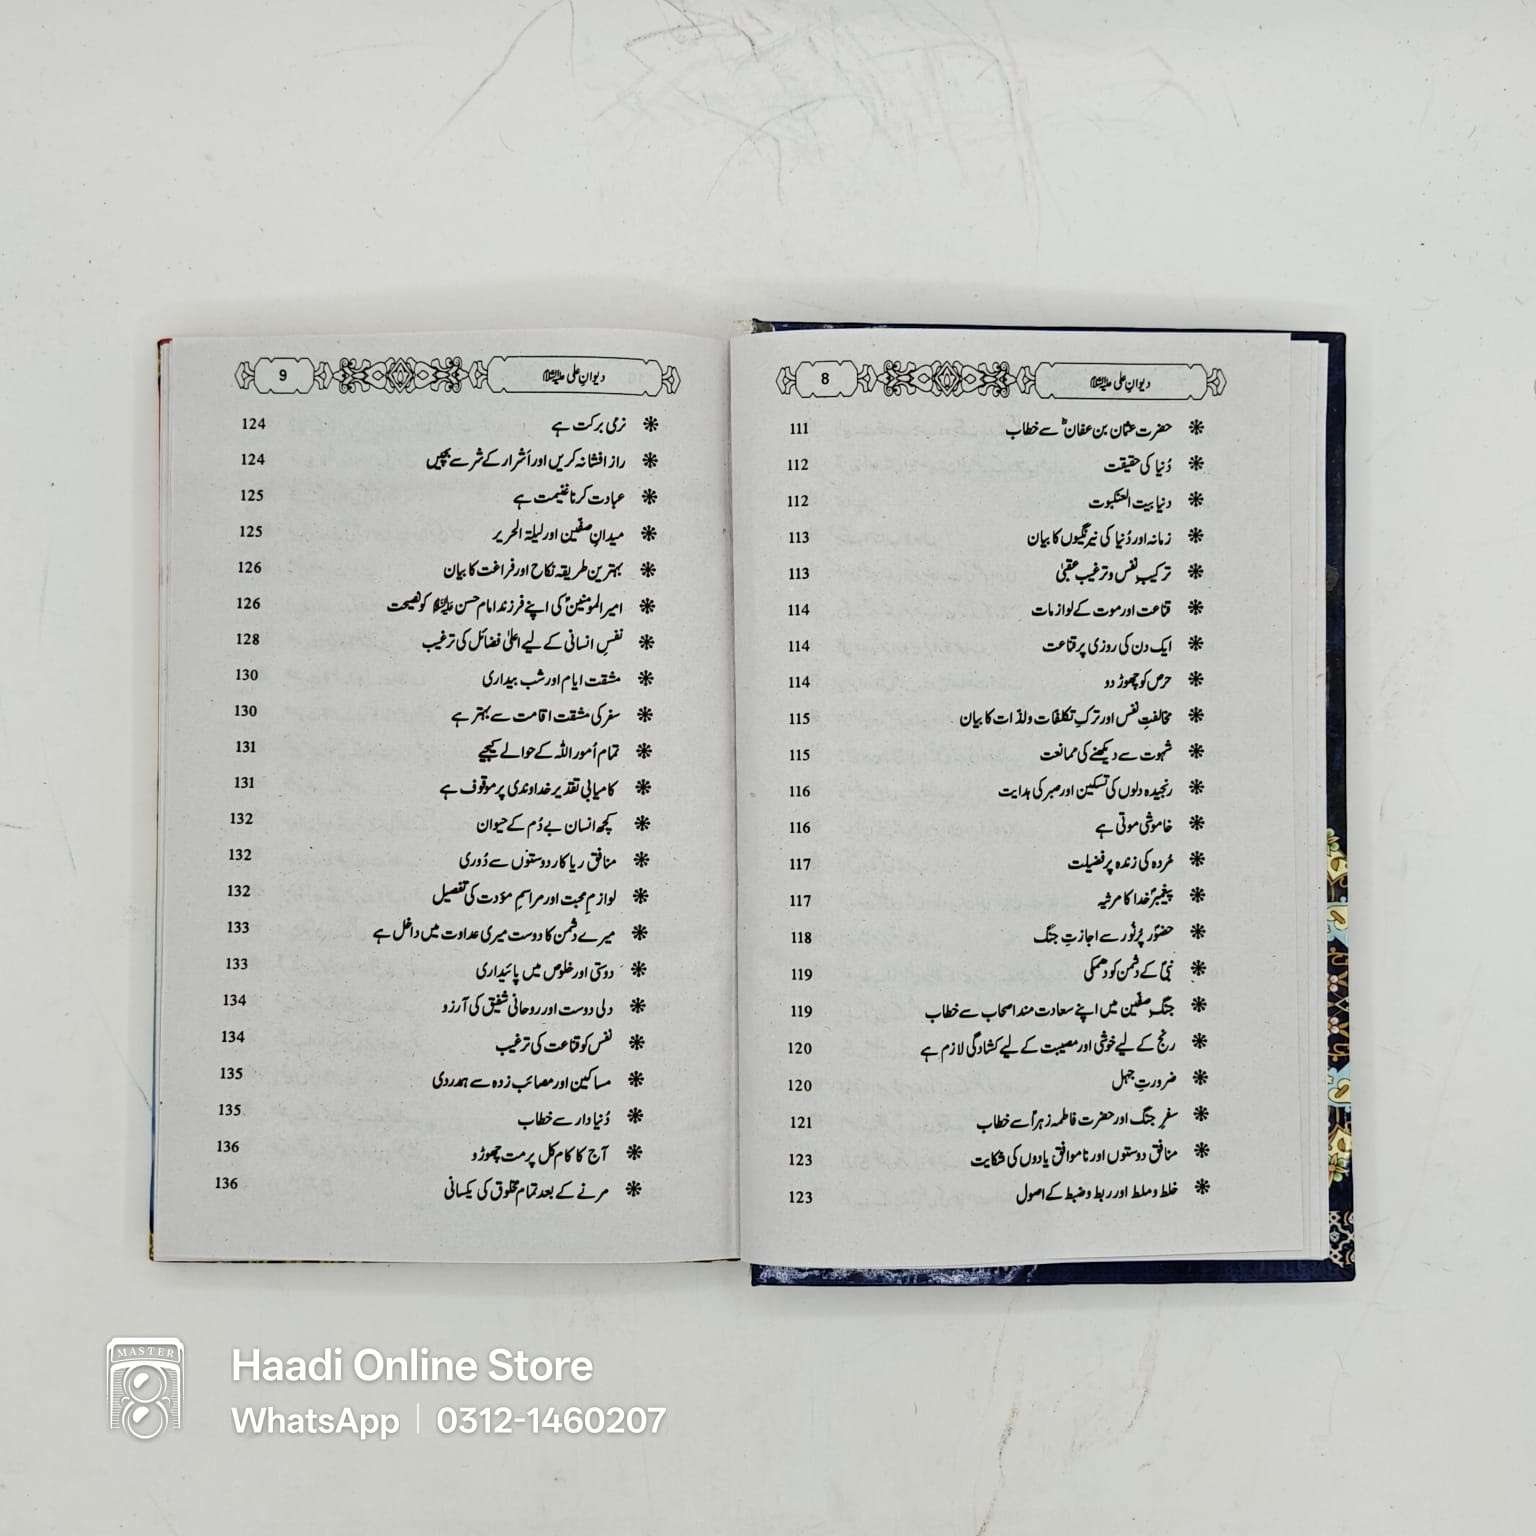 دیوانِ علی علیہ السلام 8
حضرت عثمان بن عفانؓ سے خطاب 111
دُنیا کی حقیقت 112
دنیا بیت العنکبوت 112
زمانہ اور دُنیا کی نیرنگیوں کا بیان 113
ترکیبِ نفس و ترغیب عقبیٰ 113
قناعت اور موت کے لوازمات 114
ایک دن کی روزی پر قناعت 114
حرص کو چھوڑ دو 114
مخالفتِ نفس اور ترکِ تکلفات ولذات کا بیان 115
شہوت سے دیکھنے کی ممانعت 115
رنجیدہ دلوں کی تسکین اور صبر کی ہدایت 116
خاموشی موتی ہے 116
مُردہ کی زندہ پر فضیلت 117
پیغمبرؐ خدا کا مرثیہ 117
حضورؐ پُرنُور سے اجازتِ جنگ 118
نبیؐ کے دشمن کو دھمکی 119
جنگِ صفین میں اپنے سعادت مند اصحاب سے خطاب 119
رنج کے لیے خوشی اور مصیبت کے لیے کشادگی لازم ہے 120
ضرورتِ جہل 120
سفرِ جنگ اور حضرت فاطمہ زہراؑ سے خطاب 121
منافق دوستوں اور ناموافق یادوں کی شکایت 123
خلط و ملط اور ربط و ضبط کے اصول 123
دیوانِ علی علیہ السلام 9
نرمی برکت ہے 124
راز افشا نہ کریں اور اَشرار کے شر سے بچیں 124
عبادت کرنا غنیمت ہے 125
میدانِ صفین اور لیلۃ الحریر 125
بہترین طریقہ نکاح اور فراغت کا بیان 126
امیرالمومنینؑ کی اپنے فرزند امام حسن علیہ السلام کو نصیحت 126
نفسِ انسانی کے لیے اعلیٰ فضائل کی ترغیب 128
مشقت ایام اور شب بیداری 130
سفر کی مشقت اقامت سے بہتر ہے 130
تمام اُمور اللہ کے حوالے کیجیے 131
کامیابی تقدیر خداوندی پر موقوف ہے 131
کچھ انسان بے دُم کے حیوان 132
منافق ریاکار دوستوں سے دُوری 132
لوازمِ محبت اور مراسمِ مؤدت کی تفصیل 132
میرے دشمن کا دوست میری عداوت میں داخل ہے 133
دوستی اور خلوص میں پائیداری 133
دلی دوست اور روحانی شفیق کی آرزو 134
نفس کو قناعت کی ترغیب 134
مساکین اور مصائب زدہ سے ہمدردی 135
دُنیا دار سے خطاب 135
آج کا کام کل پر مت چھوڑو 136
مرنے کے بعد تمام مخلوق کی یکسانی 136
MASTER
Haadi Online Store
WhatsApp | 0312-1460207